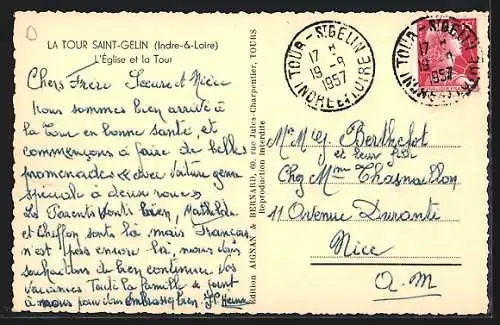 LA TOUR SAINT-GELIN (Indre-&-Loire)
L'Église et la Tour
Chers Frère Soeur et Nièce
Nous sommes bien arrivés à
la Tour en bonne santé, et
commençons à faire de belles
promenades avec voiture genre
spécial à deux roues
Les Parents vont bien, Mathilde
et sont là mais François
n'est pas encore là, nous vous
souhaitons de bien continuer vos
vacances. Toute la famille se joint
à nous pour vous embrasser bien
Edition AIGNAN & BERNARD, 60, rue Jules-Charpentier, TOURS
Reproduction interdite
TOUR - St GELIN
17 H
19 -9
1957
INDRE ET LOIRE
TOUR - St GELIN
17 H
19 -9
1957
Mr Mme Berthelot
et leur fille
Chez Mme Chasnaillon
11 Avenue Durante
Nice
A. M